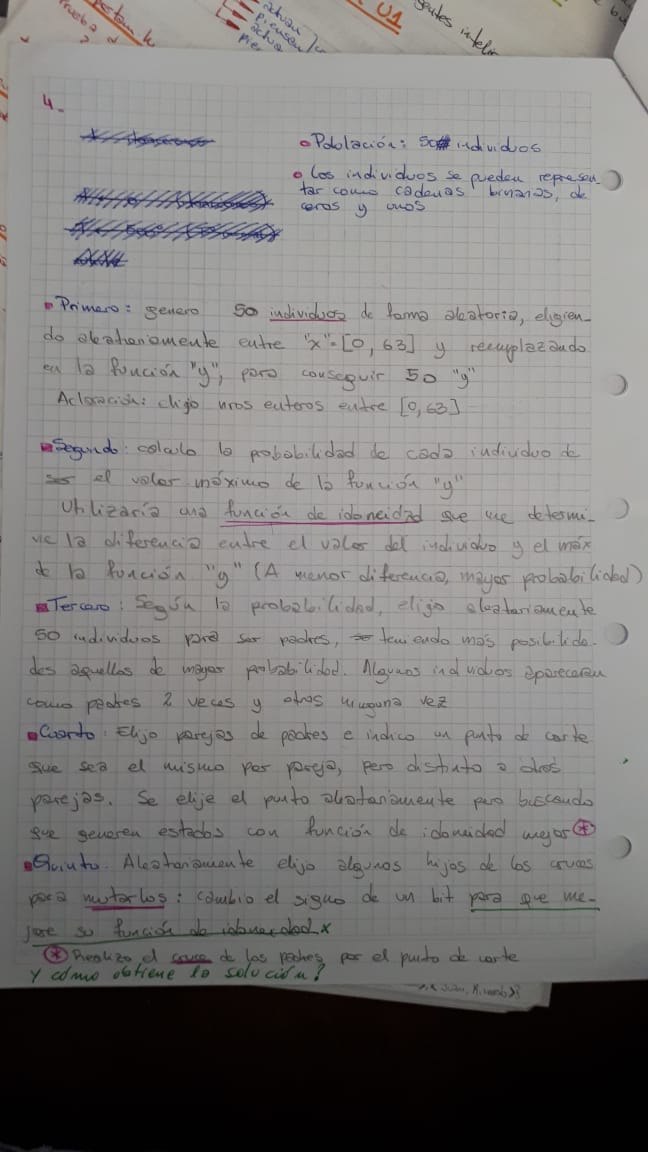 U1
actuan
piensen
actua
pie
gentes intelig
Prueba
4.-
• Población: 50 individuos
• Los individuos se pueden represen_
tar como cadenas binarias, de
ceros y unos
• Primero: genero 50 individuos de forma aleatoria, eligien_
do aleatoriamente entre "x"=[0, 63] y reemplazando
en la función "y", para conseguir 50 "y"
Aclaración: elijo nros enteros entre [0,63]
Segundo: calculo la probabilidad de cada individuo de
ser el valor máximo de la función "y"
Utilizaría una función de idoneidad que me determi_
ne la diferencia entre el valor del individuo y el máx
de la función "y" (A menor diferencia, mayor probabilidad)
Tercero: Según la probabilidad, elijo aleatoriamente
50 individuos para ser padres, teniendo más posibilida_
des aquellos de mayor probabilidad. Algunos individuos aparecerán
como padres 2 veces y otros ninguna vez
Cuarto: Elijo parejas de padres e indico un punto de corte
que sea el mismo por pareja, pero distinto a otras
parejas. Se elije el punto aleatoriamente pero buscando
que generen estados con función de idoneidad mejor *
Quinto. Aleatoriamente elijo algunos hijos de los cruces
para mutarlos: cambio el signo de un bit para que me_
jore su función de idoneidad x
* Realizo el cruce de los padres por el punto de corte
Y cómo obtiene la solución?